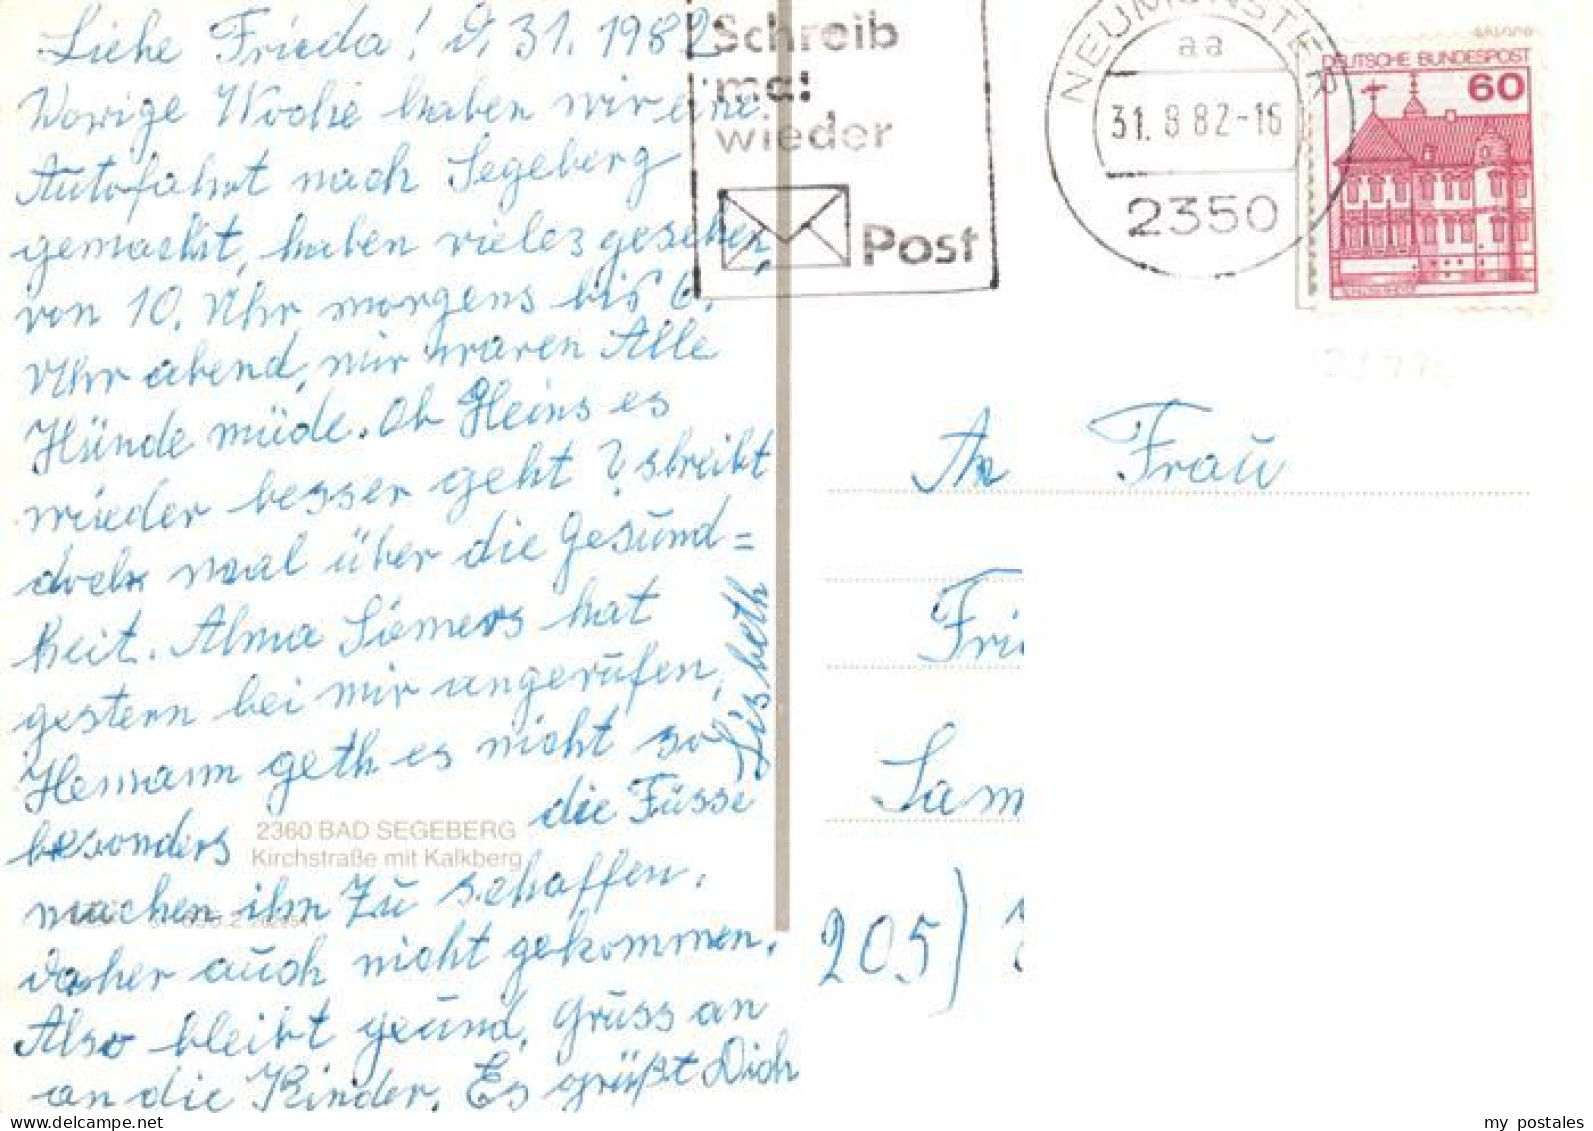 Liebe Frieda! d, 31. 1982
Vorige Woche haben wir eine
Autofahrt nach Segeberg
gemacht, haben vieles gesehen,
von 10. Uhr morgens bis 6.
Uhr abend, wir waren Alle
Hünde müde. Ob Heins es
wieder besser geht? shreibt
doch maal über die Gesund=
heit. Alma Siemers hat
gestern bei mir angerufen,
Hermann geth es nicht so
besonders die Füsse
machen ihn zu schaffen,
daher auch nicht gekommen.
Also bleibt geund, Gruss an
an die Kinder. Es grüßt Dich
Lisbeth
2360 BAD SEGEBERG
Kirchstraße mit Kalkberg
Schreib
mal
wieder
Post
NEUMÜNSTER
aa
31. 8 82-16
2350
DEUTSCHE BUNDESPOST
60
An Frau
Fri
Sam
205)
my postales